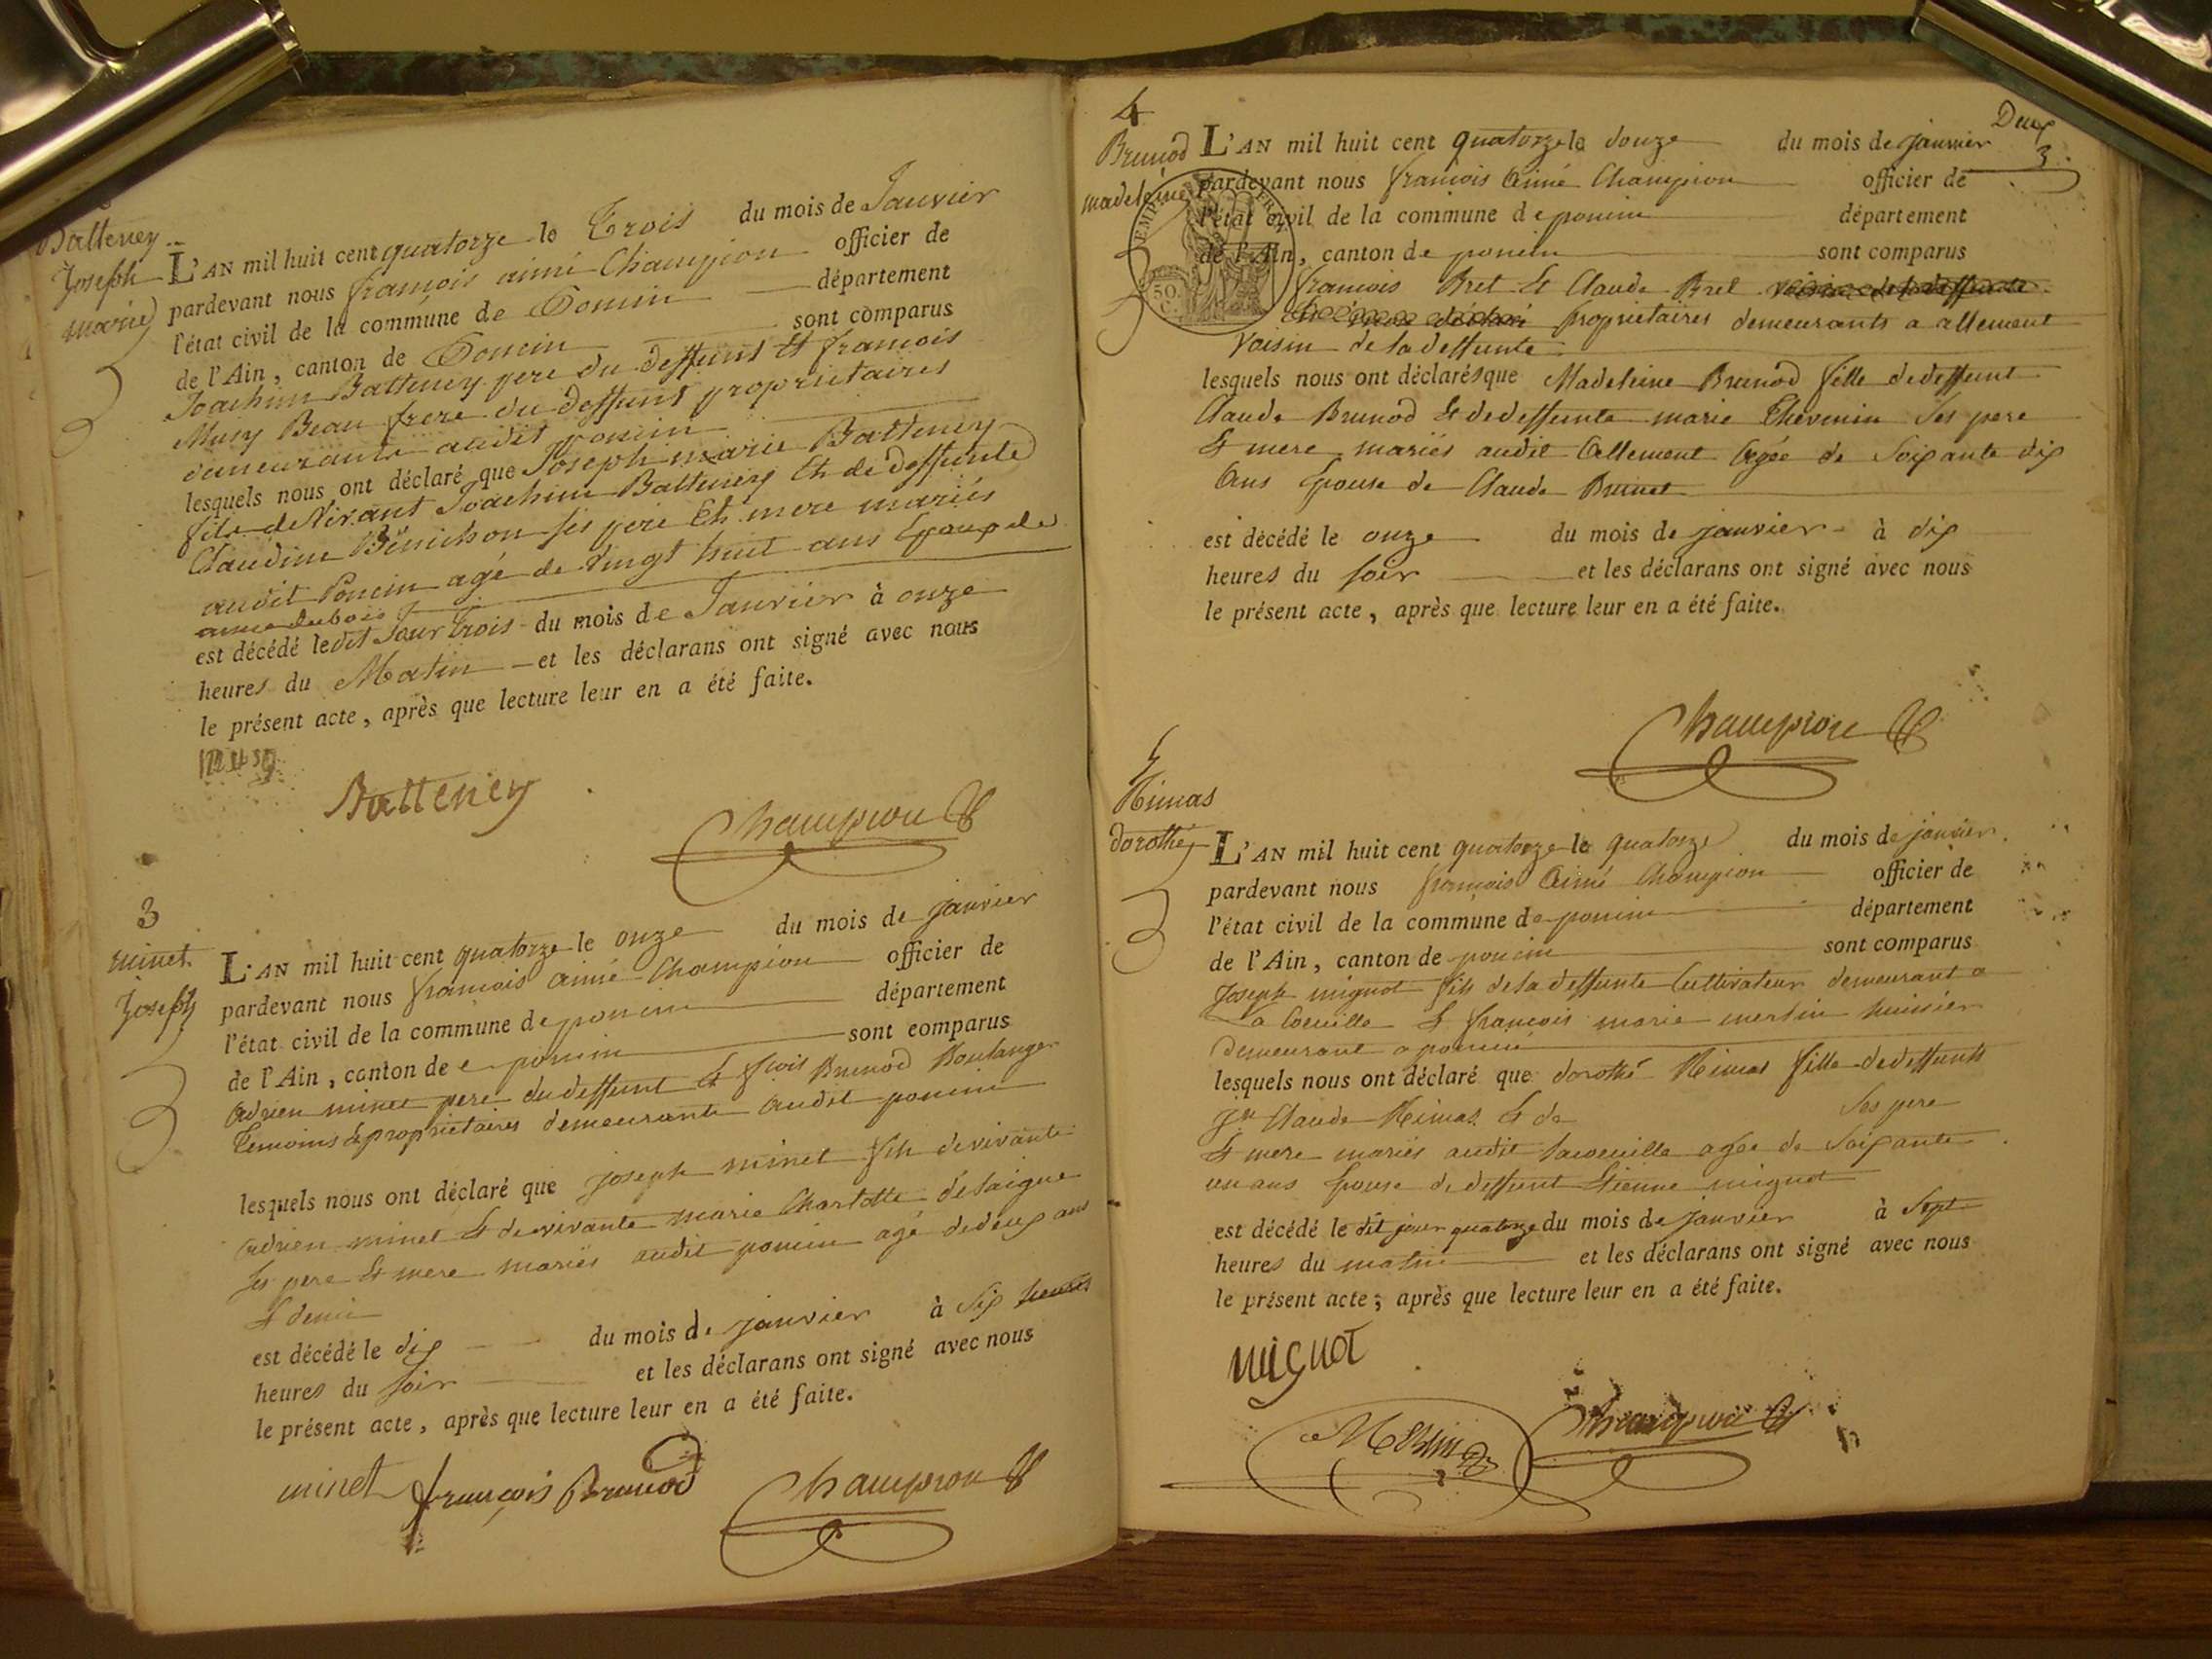 Batteney
Joseph
marie
L'AN mil huit cent quatorze le Trois du mois de Janvier
pardevant nous françois aimé Champion officier de
l'état civil de la commune de Poncin département
de l'Ain, canton de Poncin sont comparus
Joachim Batteney pere du deffunt Et françois
Musy Beau frere du deffunt proprietaires
demeurants audit poncin
lesquels nous ont déclaré que Joseph marie Batteney
fils de vivant Joachim Batteney Et de deffunte
Claudine Bénichon ses pere Et mere mariés
audit Poncin agé de vingt huit ans Epoux de
anne dubois
est décédé ledit Jour trois du mois de Janvier à onze
heures du Matin et les déclarans ont signé avec nous
le présent acte, après que lecture leur en a été faite.
Batteney
Champion
3
minet
Joseph
L'AN mil huit cent quatorze le onze du mois de janvier
pardevant nous francois aimé Champion officier de
l'état civil de la commune de poncin département
de l'Ain, canton de poncin sont comparus
Adrien minet pere du deffunt & frcois Brunod Boulanger
temoins & proprietaires demeurants audit poncin
lesquels nous ont déclaré que joseph minet fils de vivante
adrien minet & de vivante marie Charlotte delaigue
ses pere & mere mariés audit poncin agé de deux ans
& demie
est décédé le dix du mois de janvier à six heures
heures du soir et les déclarans ont signé avec nous
le présent acte, après que lecture leur en a été faite.
minet françois Brunod
Champion
Deux
3.
4
Brunod
madeleine
L'AN mil huit cent quatorze le douze du mois de janvier
pardevant nous francois Aimé Champion officier de
l'état civil de la commune de poncin département
de l'Ain, canton de poncin sont comparus
francois Bret & Claude Bret
proprietaires demeurants a allement
Voisin de la deffunte
lesquels nous ont déclarés que Madeleine Brunod fille de deffunt
Claude Brunod & de deffunte marie Thevenin ses pere
& mere mariés audit allement agée de soixante dix
ans Epouse de Claude Brunet
est décédé le onze du mois de janvier à dix
heures du soir et les déclarans ont signé avec nous
le présent acte, après que lecture leur en a été faite.
Champion
5
Rimas
dorothé
L'AN mil huit cent quatorze le quatorze du mois de janvier
pardevant nous francois Aimé Champion officier de
l'état civil de la commune de poncin département
de l'Ain, canton de poncin sont comparus
joseph mignot fils de la deffunte Cultivateur demeurant a
& francois marie merlin huissier
demeurant a poncin
lesquels nous ont déclaré que dorothé Rimas fille de deffunts
jn Claude Rimas & de ses pere
& mere mariés audit agée de soixante
un ans Epouse de deffunt Etienne mignot
est décédé le dit jour quatorze du mois de janvier à Sept
heures du matin et les déclarans ont signé avec nous
le présent acte, après que lecture leur en a été faite.
mignot
Merlin Champion